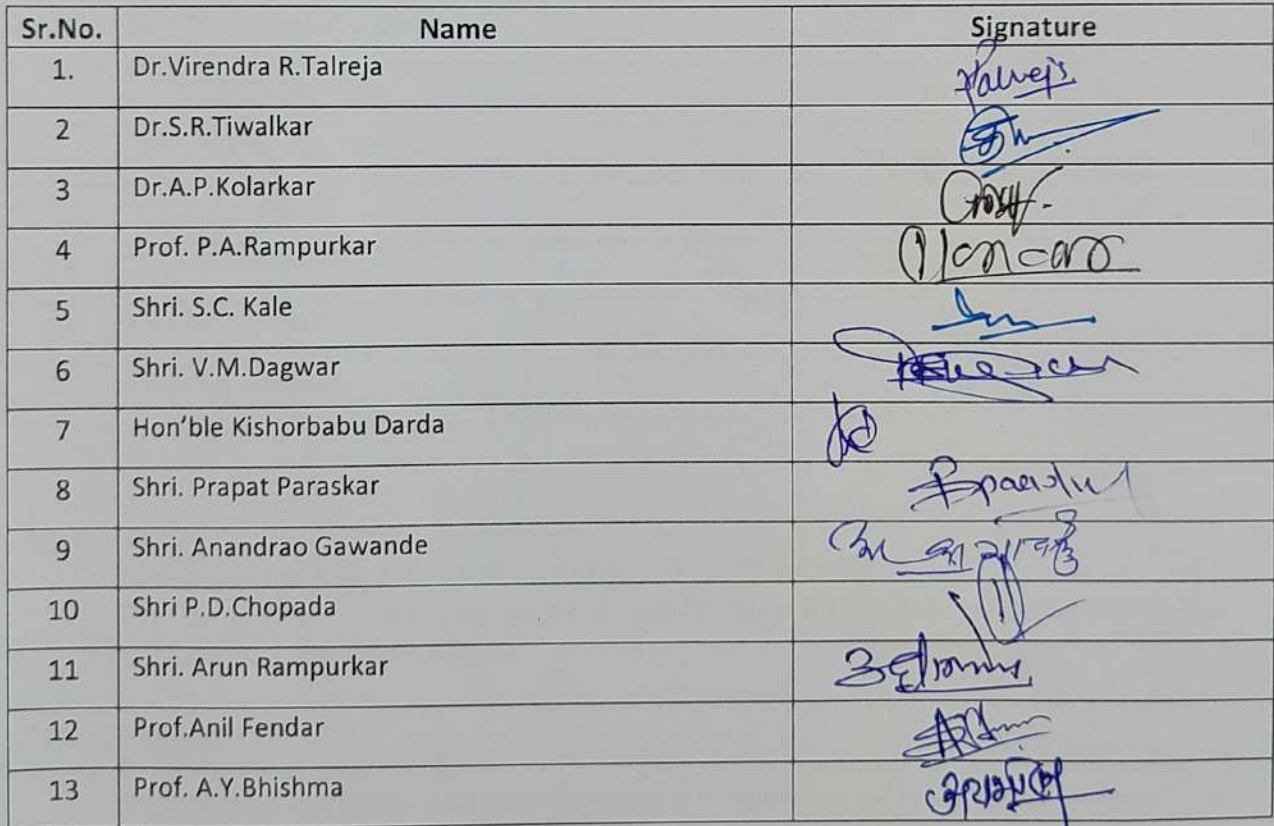 Sr.No. Name Signature
1. Dr.Virendra R.Talreja
2 Dr.S.R.Tiwalkar
3 Dr.A.P.Kolarkar
4 Prof. P.A.Rampurkar
5 Shri. S.C. Kale
6 Shri. V.M.Dagwar
7 Hon'ble Kishorbabu Darda
8 Shri. Prapat Paraskar
9 Shri. Anandrao Gawande
10 Shri P.D.Chopada
11 Shri. Arun Rampurkar
12 Prof.Anil Fendar
13 Prof. A.Y.Bhishma